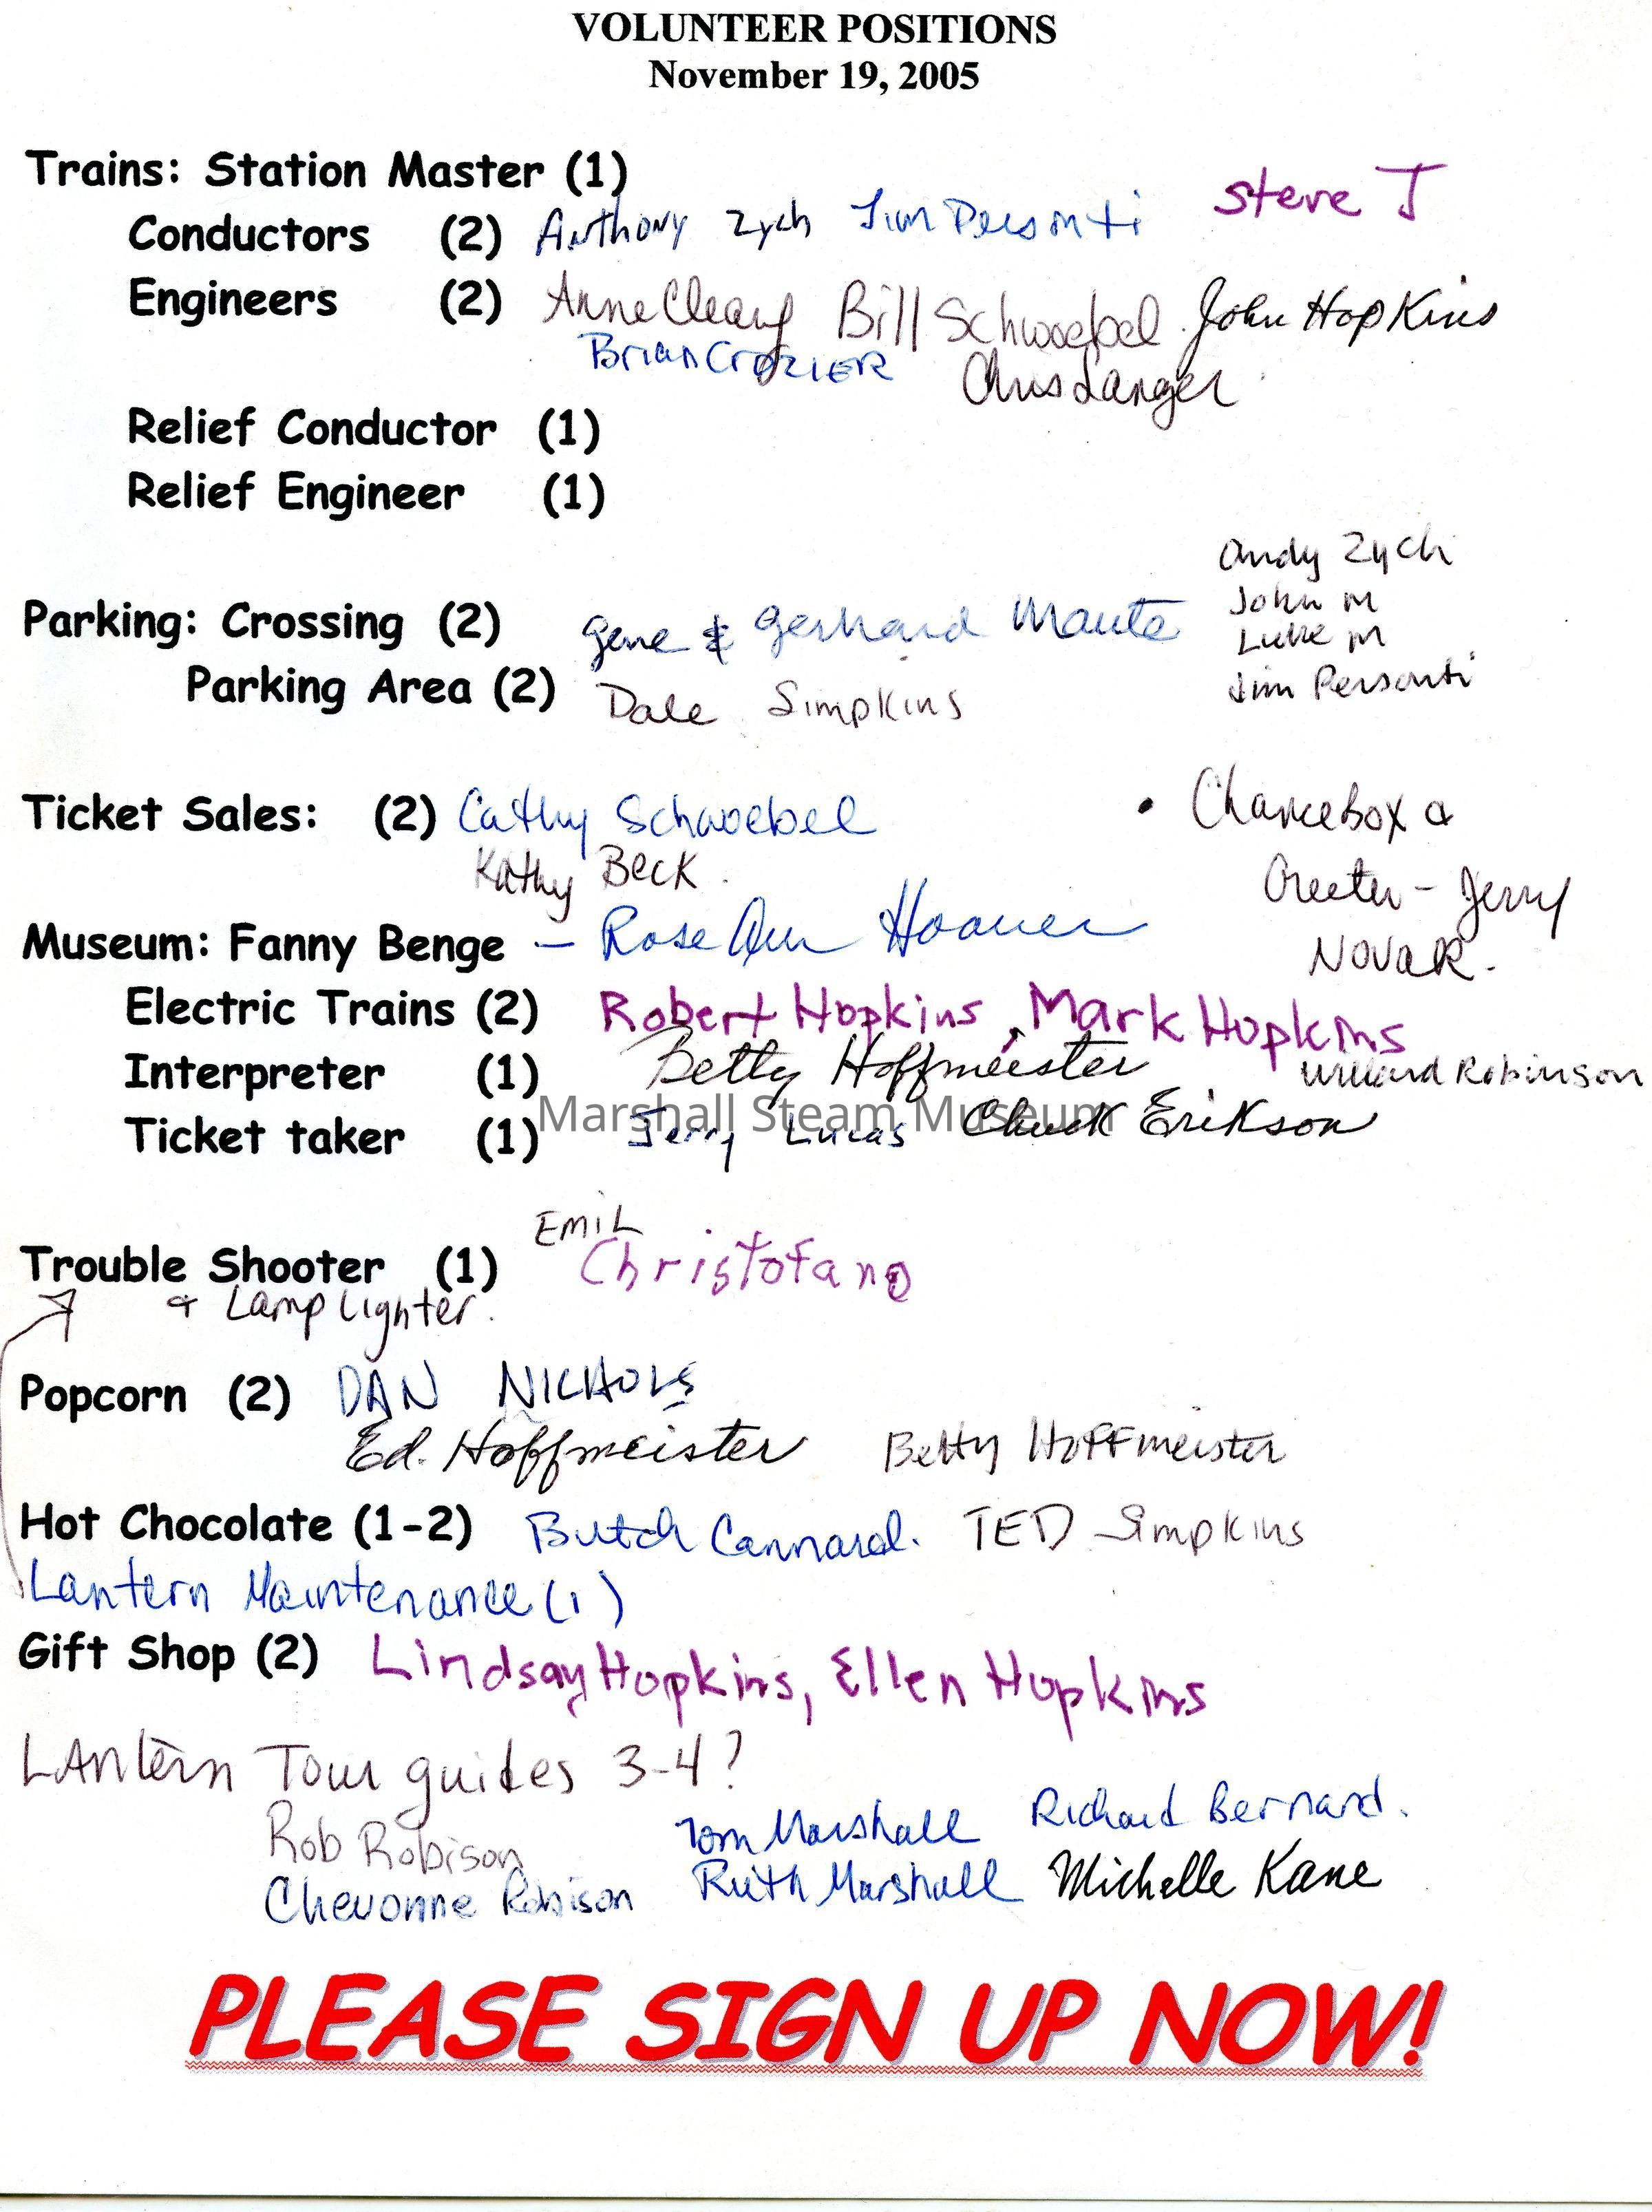 VOLUNTEER POSITIONS
November 19, 2005
Trains: Station Master (1)
Conductors (2) Anthony Zych Jim Personti Steve J
Engineers (2) Anne Cleary Bill Schwoebel John Hopkins
Brian Crozier Chris Langer
Relief Conductor (1)
Relief Engineer (1)
Andy Zych
John M
Parking: Crossing (2) Gene & Gerhard Maute
Luke M
Parking Area (2) Dale Simpkins Jim Personti
Ticket Sales: (2) Cathy Schwoebel • Chancebox &
Kathy Beck Greeter - Jerry
Museum: Fanny Benge - Rose Ann Hoover Novak.
Electric Trains (2) Robert Hopkins, Mark Hopkins
Interpreter (1) Betty Hoffmeister Willard Robinson
Marshall Steam Museum
Ticket taker (1) Jerry Lucas Chuck Erikson
Emil
Trouble Shooter (1) Christofano
& Lamp Lighter.
Popcorn (2) DAN NICHOLS
Ed. Hoffmeister Betty Hoffmeister
Hot Chocolate (1-2) Butch Cannard. TED Simpkins
Lantern Maintenance (1)
Gift Shop (2) Lindsay Hopkins, Ellen Hopkins
LAntern Tour guides 3-4?
Rob Robison Tom Marshall Richard Bernard.
Chevonne Robison Ruth Marshall Michelle Kane
PLEASE SIGN UP NOW!